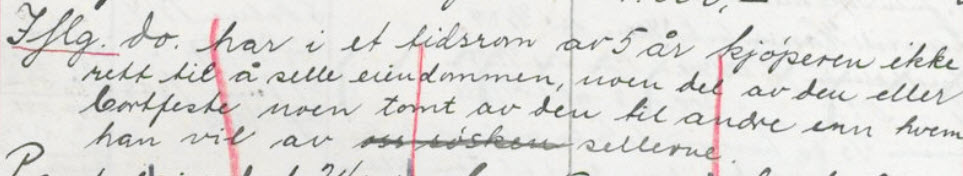 Iflg. do. har i et tidsrom av 5 år kjøperen ikke
rett til å selle eiendommen, noen del av den eller
bortfeste noen tomt av den til andre enn hvem
han vil av oss søsken sellerne.